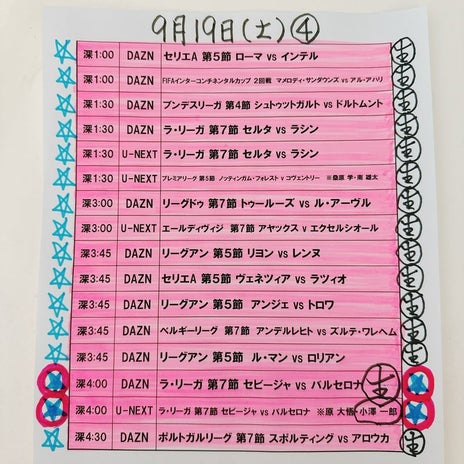 9月19日(土)④
深1:00 DAZN セリエA 第5節 ローマ vs インテル 土
深1:00 DAZN FIFAインターコンチネンタルカップ 2回戦 マメロディ・サンダウンズ vs アル・アハリ 土
深1:30 DAZN ブンデスリーガ 第4節 シュトゥットガルト vs ドルトムント 土
深1:30 DAZN ラ・リーガ 第7節 セルタ vs ラシン 土
深1:30 U-NEXT ラ・リーガ 第7節 セルタ vs ラシン 土
深1:30 U-NEXT プレミアリーグ 第5節 ノッティンガム・フォレスト v コヴェントリー ※桑原 学・南 雄太 土
深3:00 DAZN リーグドゥ 第7節 トゥールーズ vs ル・アーヴル 土
深3:00 U-NEXT エールディヴィジ 第7節 アヤックス v エクセルシオール 土
深3:45 DAZN リーグアン 第5節 リヨン vs レンヌ 土
深3:45 DAZN セリエA 第5節 ヴェネツィア vs ラツィオ 土
深3:45 DAZN リーグアン 第5節 アンジェ vs トロワ 土
深3:45 DAZN ベルギーリーグ 第7節 アンデルレヒト vs ズルテ・ワレヘム 土
深3:45 DAZN リーグアン 第5節 ル・マン vs ロリアン 土
深4:00 DAZN ラ・リーガ 第7節 セビージャ vs バルセロナ 土
深4:00 U-NEXT ラ・リーガ 第7節 セビージャ vs バルセロナ ※原 大悟・小澤 一郎
深4:30 DAZN ポルトガルリーグ 第7節 スポルティング vs アロウカ 土